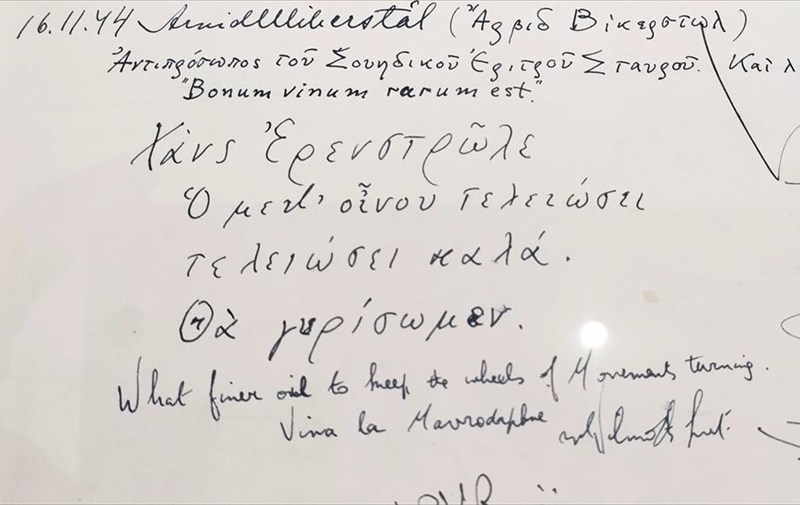 16.11.44 Arvid Wikerstål (Ἄρβιδ Βίκερστωλ)
Ἀντιπρόσωπος τοῦ Σουηδικοῦ Ἐριτροῦ Σταυροῦ. Καὶ
"Bonum vinum rarum est."
Χάνς Ἐρενστρῶλε
Ὁ μετ' οἴνου τελειώσει
τελειώσει καλά.
Θὰ γυρίσωμεν.
What finer oil to keep the wheels of Movements turning.
Viva la Mavrodaphne